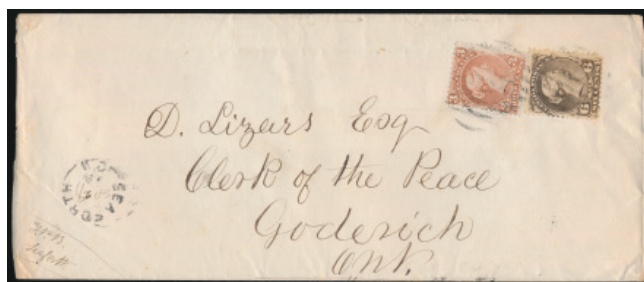 D. Lizars Esq
Clerk of the Peace
Goderich
Ont.
SEAFORTH